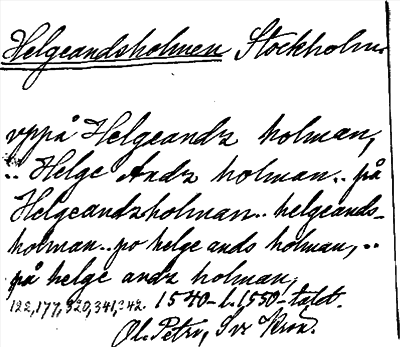 Helgeandsholmen Stockholm
vppå Helgeandz holman,
.. Helge Andz holman.. på
Helgeandzholman.. helgeands-
holman.. po helge ands holman, ..
på helge andz holman,
122, 177, 320, 341, 342. 1540- l. 1550-talet.
Ol. Petri, Sv. Krön.